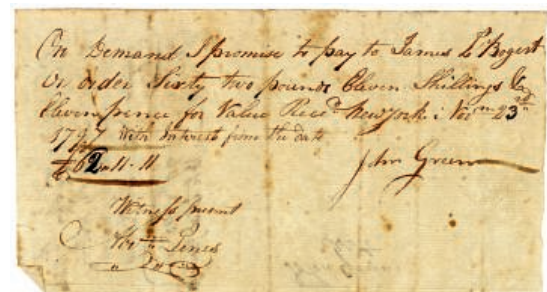 On Demand I promise to pay to James L Bogert
or order Sixty two pounds Eleven Shillings &
Elevenpence for Value Recd New York Novm 23d
1797 with Interest from the date
£62-11-11
John Green
Witness present